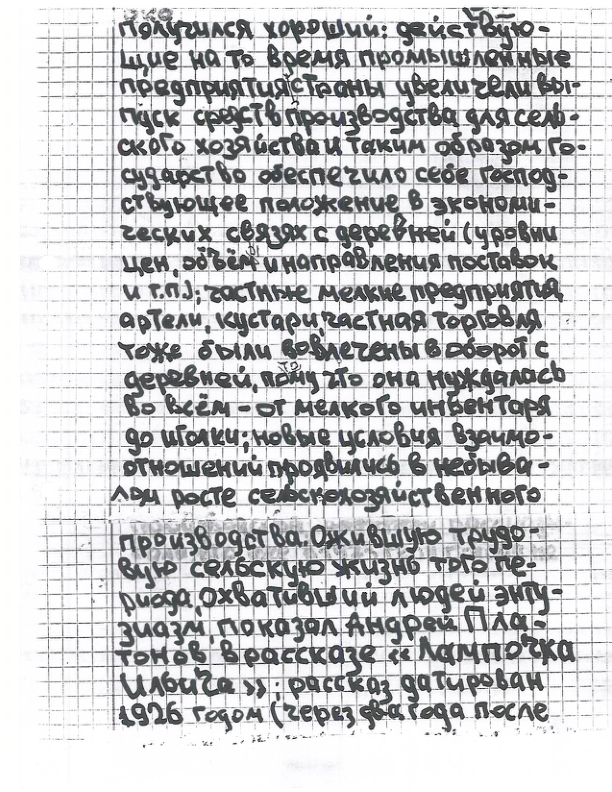 получился хороший: действую-
щие на то время промышленные
предприятия страны увеличели вы-
пуск средств производства для сель-
ского хозяйства и таким образом го-
сударство обеспечило себе господ-
ствующее положение в экономи-
ческих связях с деревней (уровни
цен, объём и направления поставок
и т.п.); частные мелкие предприятия,
артели, кустари, частная торговля
тоже были вовлечены в оборот с
деревней, потому что она нуждалась
во всём - от мелкого инвентаря
до иголки; новые условия взаимо-
отношений проявились в небыва-
лом росте сельскохозяйственного
производства. Ожившую трудо-
вую сельскую жизнь того пе-
риода, охвативший людей энту-
зиазм, показал Андрей Пла-
тонов в рассказе «Лампочка
Ильича»; рассказ датирован
1926 годом (через два года после